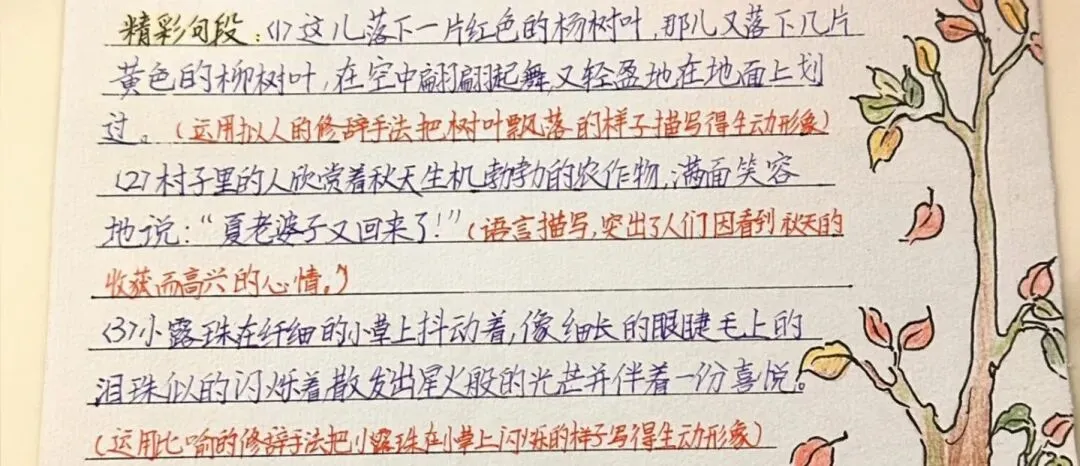 精彩句段：(1)这儿落下一片红色的杨树叶，那儿又落下几片
黄色的柳树叶，在空中翩翩起舞，又轻盈地在地面上划
过。(运用拟人的修辞手法把树叶飘落的样子描写得生动形象)
(2)村子里的人欣赏着秋天生机勃勃的农作物，满面笑容
地说：“夏老婆子又回来了！”(语言描写，突出了人们因看到秋天的
收获而高兴的心情。)
(3)小露珠在纤细的小草上抖动着，像细长的眼睫毛上的
泪珠似的闪烁着，散发出星火般的光芒并伴着一份喜悦。
(运用比喻的修辞手法把小露珠在小草上闪烁的样子写得生动形象)